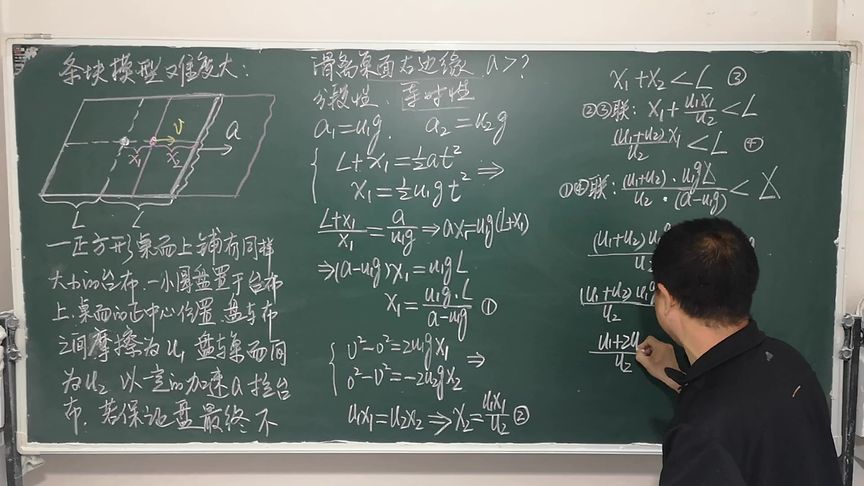 条块模型難度大:
υ
a
x₁
x₂
L
L
一正方形桌面上铺有同样
大小的台布.一小圆盘置于台布
上.桌面的正中心位置.盘与布
之间摩擦为u₁ 盘与桌面间
为u₂ 以一定的加速a拉台
布.若保证盘最终不
滑离桌面右边缘.a>?
分段性、等时性
a₁=u₁g. a₂=u₂g
L+x₁=½at²
x₁=½u₁gt² ⇒
(L+x₁)/x₁=a/(u₁g)⇒ax₁=u₁g(L+x₁)
⇒(a-u₁g)x₁=u₁gL
x₁=(u₁g·L)/(a-u₁g) ①
υ²-0²=2u₁gx₁
0²-υ²=-2u₂gx₂ ⇒
u₁x₁=u₂x₂⇒x₂=(u₁x₁)/u₂ ②
x₁+x₂<L ③
②③联: x₁+(u₁x₁)/u₂<L
((u₁+u₂)/u₂)x₁<L ④
①④联: ((u₁+u₂)·u₁gL)/(u₂·(a-u₁g))<L
(u₁+u₂)u₁g
u₂
(u₁+u₂)u₁g
u₂
u₁+2u
u₂